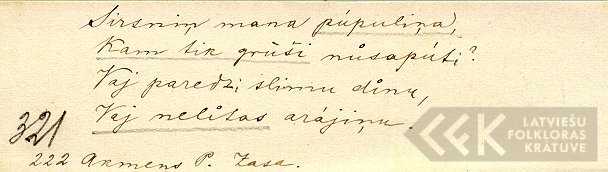 Sirsniņ mana púpuliņa,
Kam tik grūši nůsapúti?
Vaj paredzi slimu dínu,
Vaj nelítas arájiņu.
321
222 Akmens P. Zasa.
LATVIEŠU
FOLKLORAS
KRĀTUVE